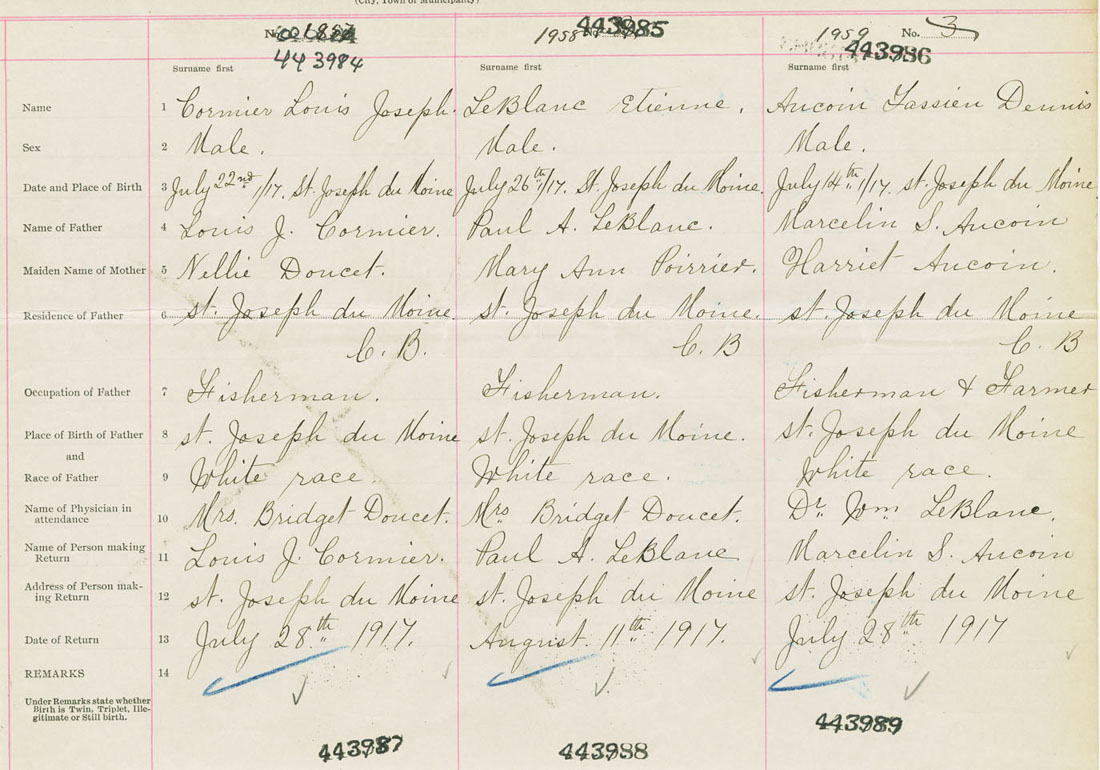 (City, Town or Municipality)
443984
1958 No. 443985
1959 No. 3
443986
Surname first Surname first Surname first
Name 1 Cormier Louis Joseph. LeBlanc Etienne. Aucoin Tassien Dennis
Sex 2 Male. Male. Male.
Date and Place of Birth 3 July 22nd/17. St. Joseph du Moine July 26th/17. St. Joseph du Moine. July 14th/17. st. Joseph du Moine
Name of Father 4 Louis J. Cormier. Paul A. LeBlanc. Marcelin S. Aucoin
Maiden Name of Mother 5 Nellie Doucet. Mary Ann Poirrier. Harriet Aucoin.
Residence of Father 6 st. Joseph du Moine. st. Joseph du Moine. st. Joseph du Moine
C. B. C. B C. B
Occupation of Father 7 Fisherman. Fisherman. Fisherman & Farmer
Place of Birth of Father 8 st. Joseph du Moine st. Joseph du Moine. st. Joseph du Moine
and
Race of Father 9 White race. White race. White race.
Name of Physician in
attendance 10 Mrs. Bridget Doucet. Mrs Bridget Doucet. Dr. Wm LeBlanc.
Name of Person making
Return 11 Louis J. Cormier. Paul A. LeBlanc Marcelin S. Aucoin
Address of Person mak-
ing Return 12 st. Joseph du Moine st. Joseph du Moine st. Joseph du Moine
Date of Return 13 July 28th 1917. August 11th 1917. July 28th 1917
REMARKS 14
Under Remarks state whether
Birth is Twin, Triplet, Ille-
gitimate or Still birth.
443987 443988 443989